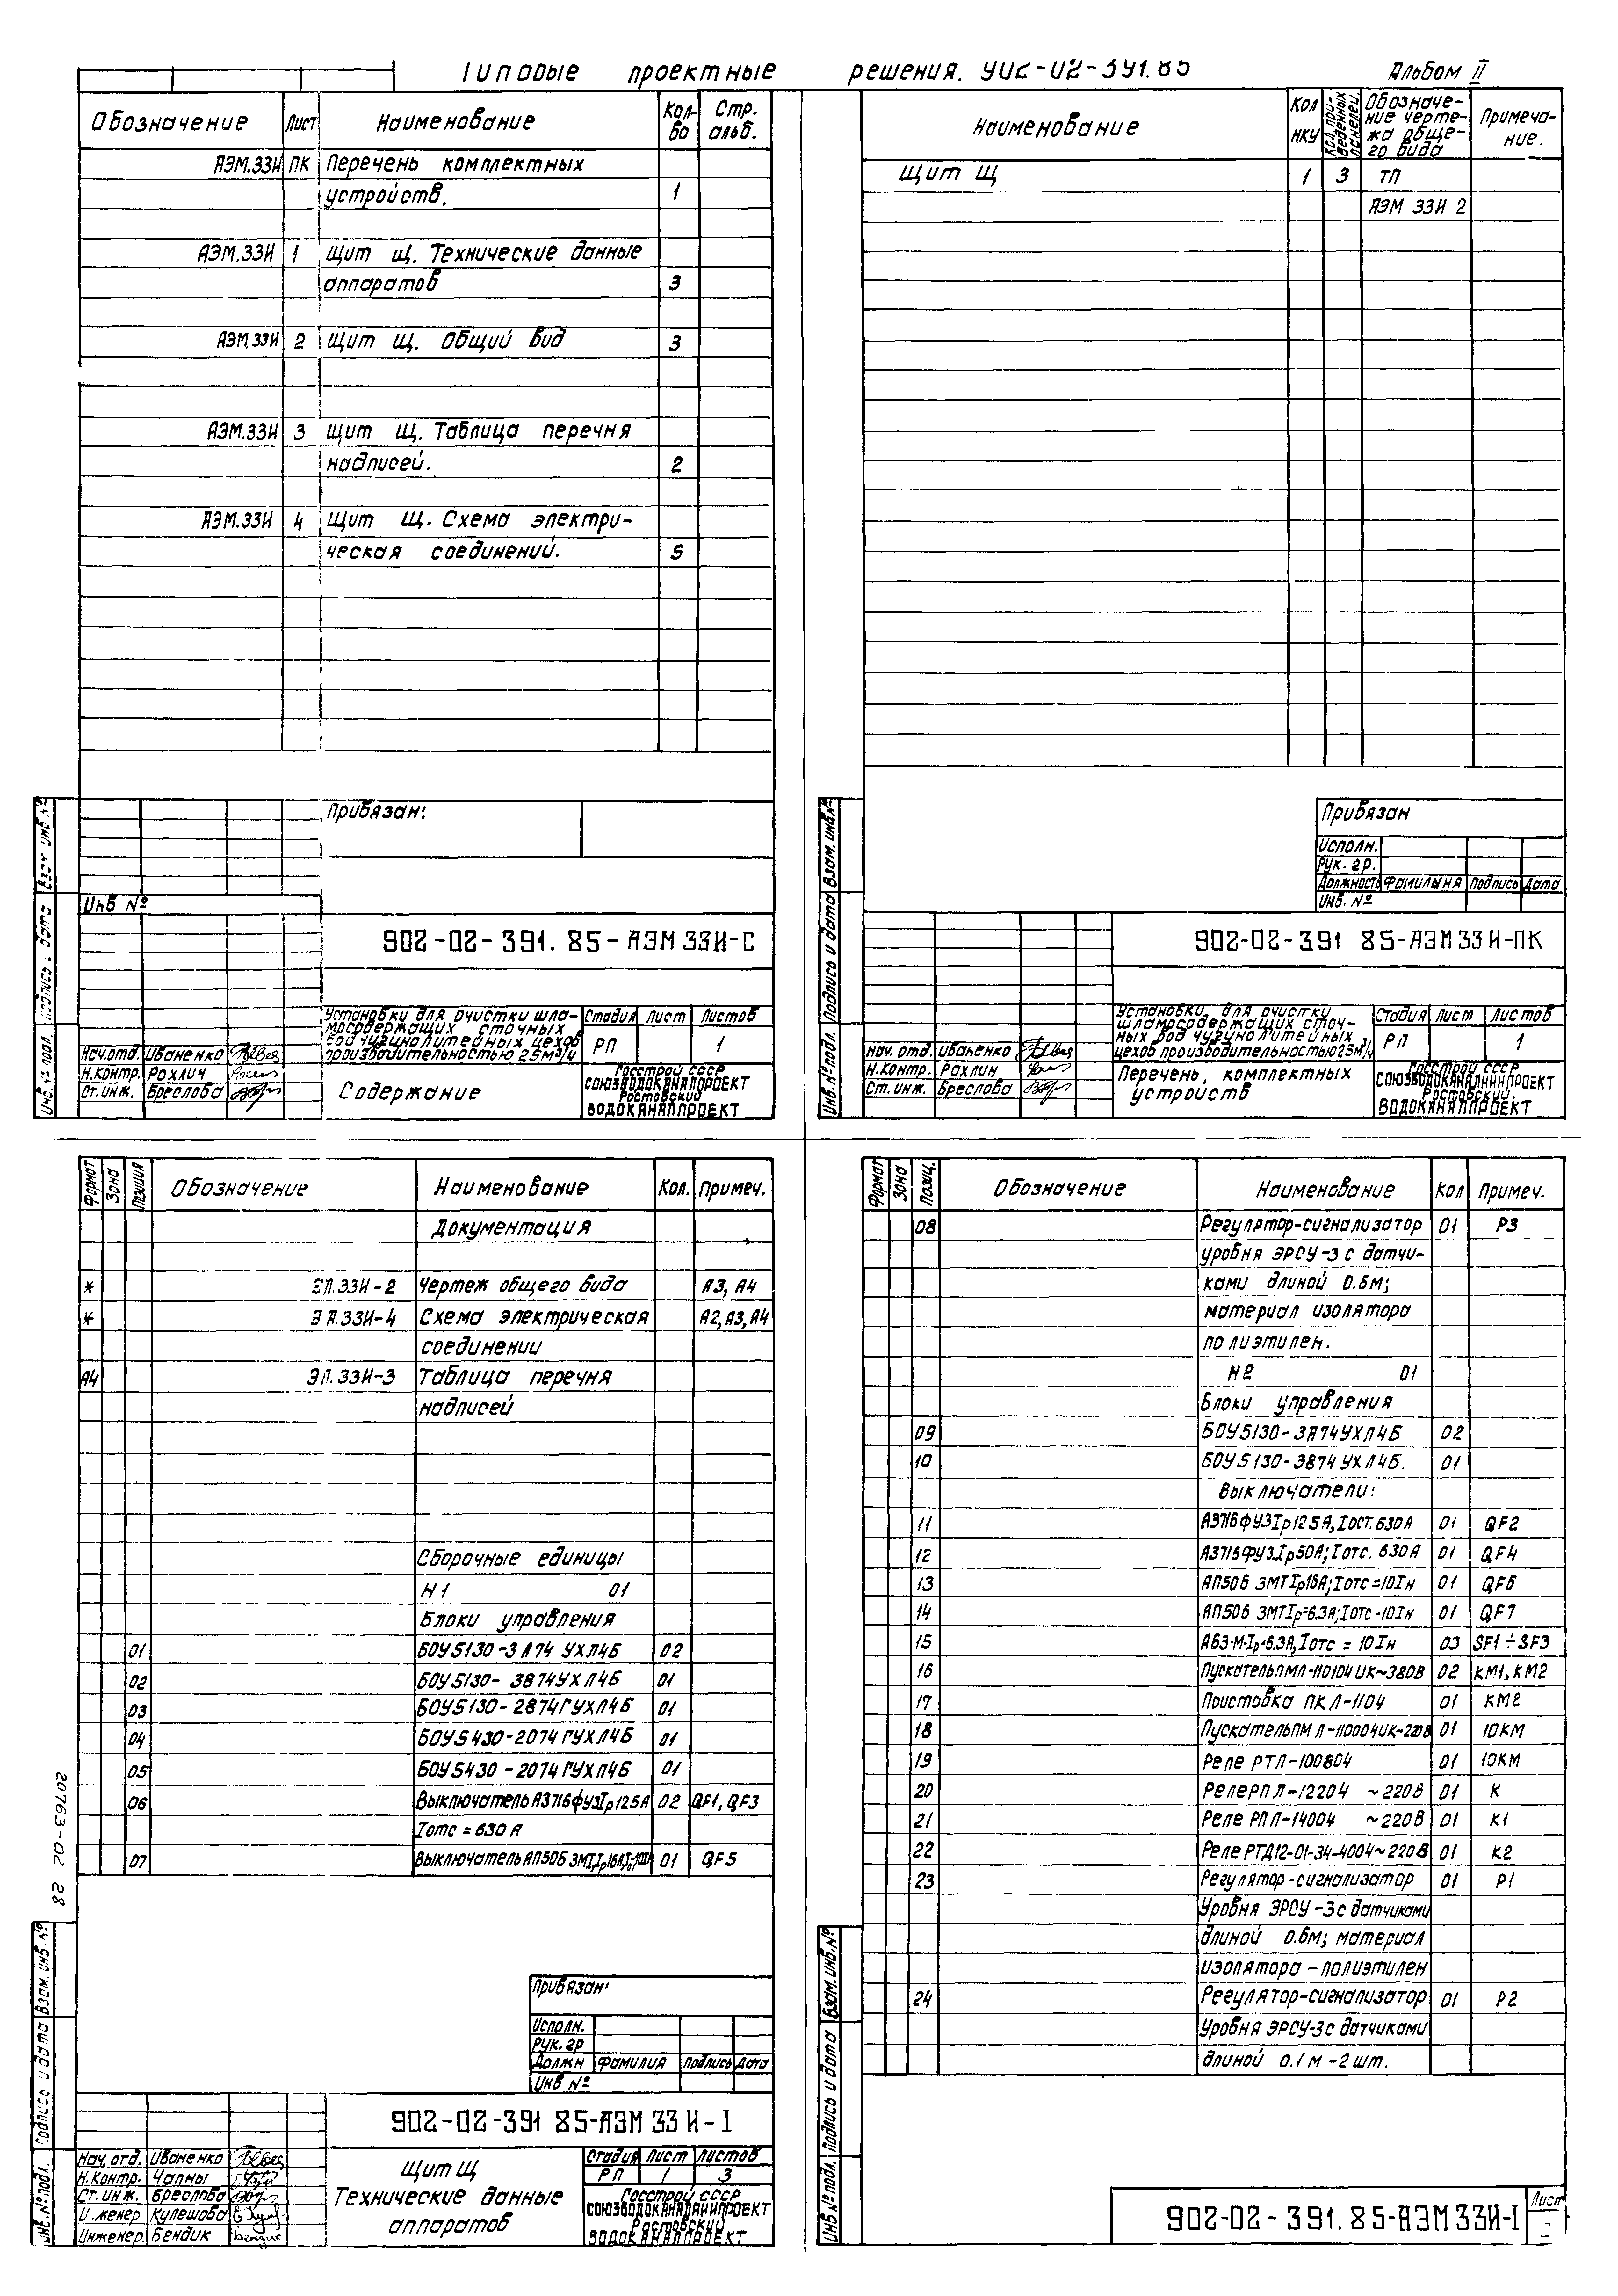 Типовые проектные решения. 902-02-391.85 Альбом II
Обозначение Лист Наименование Кол-во Стр. альб.
АЭМ.33И ПК Перечень комплектных
устройств. 1
АЭМ.33И 1 Щит Щ. Технические данные
аппаратов 3
АЭМ.33И 2 Щит Щ. Общий вид 3
АЭМ.33И 3 Щит Щ. Таблица перечня
надписей. 2
АЭМ.33И 4 Щит Щ. Схема электри-
ческая соединений. 5
Привязан:
Инв №
902-02-391.85-АЭМ 33И-С
Установки для очистки шла-
мосодержащих сточных
вод чугунолитейных цехов
производительностью 25м³/ч
Стадия Лист Листов
РП 1
Нач.отд. Иваненко
Н.контр. Рохлин
Ст.инж. Бреслова
Содержание
Госстрой СССР
СОЮЗВОДОКАНАЛПРОЕКТ
Ростовский
ВОДОКАНАЛПРОЕКТ
Инв.№ подл. Подпись и дата Взам инв.№
Наименование
Кол НКУ
Кол. приведенных панелей
Обозначе-
ние черте-
жа обще-
го вида
Примеча-
ние.
Щит Щ 1 3 ТП
АЭМ 33И 2
Привязан
Исполн.
Рук. гр.
Должность Фамилыня Подпись Дата
Инв. №
902-02-391 85-АЭМ 33И-ПК
Установки для очистки
шламосодержащих сточ-
ных вод чугунолитейных
цехов производительностью 25м³/ч
Стадия Лист Листов
РП 1
Нач. отд. Иваненко
Н.Контр. Рохлин
Ст. инж. Бреслова
Перечень, комплектных
устройств
Госстрой СССР
СОЮЗВОДОКАНАЛНИИПРОЕКТ
Ростовский.
ВОДОКАНАЛПРОЕКТ
Инв.№ подл. Подпись и дата Взам. инв.№
Формат Зона Позиция Обозначение Наименование Кол. Примеч.
Документация
* ЭЛ.33И-2 Чертеж общего вида А3, А4
* ЭЛ.33И-4 Схема электрическая А2, А3, А4
соединении
А4 ЭЛ.33И-3 Таблица перечня
надписей
Сборочные единицы
Н1 01
Блоки управления
01 БОУ5130-3А74 УХЛ4Б 02
02 БОУ5130-3874УХЛ4Б 01
03 БОУ5130-2874ГУХЛ4Б 01
04 БОУ5430-2074ГУХЛ4Б 01
05 БОУ5430-2074ГУХЛ4Б 01
06 Выключатель А3716фУ3Iр125А 02 QF1, QF3
Iотс = 630 А
07 Выключатель АП50Б 3МТ, Iр16А, 01 QF5
20763-02 28
Привязан:
Исполн.
Рук. гр
Должн Фамилия Подпись Дата
Инв №
902-02-391 85-АЭМ 33И-I
Нач. отд. Иваненко
Н.Контр. Чалны
Ст. инж. Бреслова
И.женер Кулешова
Инженер. Бендик
Щит Щ
Технические данные
аппаратов
Стадия Лист Листов
РП 1 3
Госстрой СССР
СОЮЗВОДОКАНАЛНИИПРОЕКТ
Ростовский
ВОДОКАНАЛПРОЕКТ
Инв.№ подл. Подпись и дата Взам. инв.№
Формат Зона Позиц. Обозначение Наименование Кол Примеч.
08 Регулятор-сигнализатор 01 Р3
уровня ЭРСУ-3 с датчи-
ками длиной 0.6м;
материал изолятора
полиэтилен.
Н2 01
Блоки управления
09 БОУ5130-3А74УХЛ4Б 02
10 БОУ5130-3874 УХЛ4Б. 01
Выключатели:
11 А3716фУ3Iр125А, Iост.630А 01 QF2
12 А3716ФУ3.Iр50А; Iотс. 630А 01 QF4
13 АП50Б 3МТIр16А; Iотс=10Iн 01 QF6
14 АП50Б 3МТIр=6.3А; Iотс-10Iн 01 QF7
15 А63-М-Iр-6.3А, Iотс = 10Iн 03 SF1÷SF3
16 Пускатель ПМЛ-110104 UК~380В 02 КМ1, КМ2
17 Приставка ПКЛ-1104 01 КМ2
18 Пускатель ПМЛ-110004UК~220В 01 10КМ
19 Реле РТЛ-100804 01 10КМ
20 Реле РПЛ-12204 ~220В 01 К
21 Реле РПЛ-14004 ~220В 01 К1
22 Реле РТД12-01-34-4004~220В 01 К2
23 Регулятор-сигнализатор 01 Р1
Уровня ЭРСУ-3 с датчиками
длиной 0.6м; материал
изолятора-полиэтилен
24 Регулятор-сигнализатор 01 Р2
Уровня ЭРСУ-3с датчиками
длиной 0.1 м-2 шт.
Инв.№ подл. Подпись и дата Взам. инв.№
902-02-391.85-АЭМ 33И-I
Лист